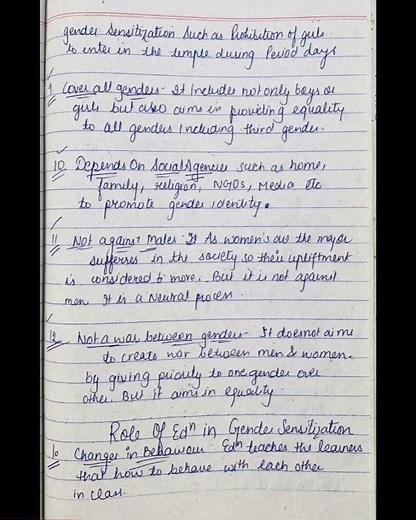 gender Sensitization Such as Prohibition of girls
to enter in the temple during Period days
9. Cover all genders - It Includes not only boys or
girls but also aims in providing equality
to all genders Including third gender.
10. Depends On Social Agencies such as home,
family, religion, NGOs, Media etc
to promote gender identity.
11. Not against Males - It As women's are the major
sufferers in the society so their upliftment
is considered to more. But it is not against
men It is a Neutral process.
12. Not a war between genders - It doesnot aims
to create war between men & women.
by giving priority to one gender over
other. But it aims in equality.
Role Of Edn in Gender Sensitization
1. Changes in Behaviour - Edn teaches the learners
that how to behave with each other
in class.